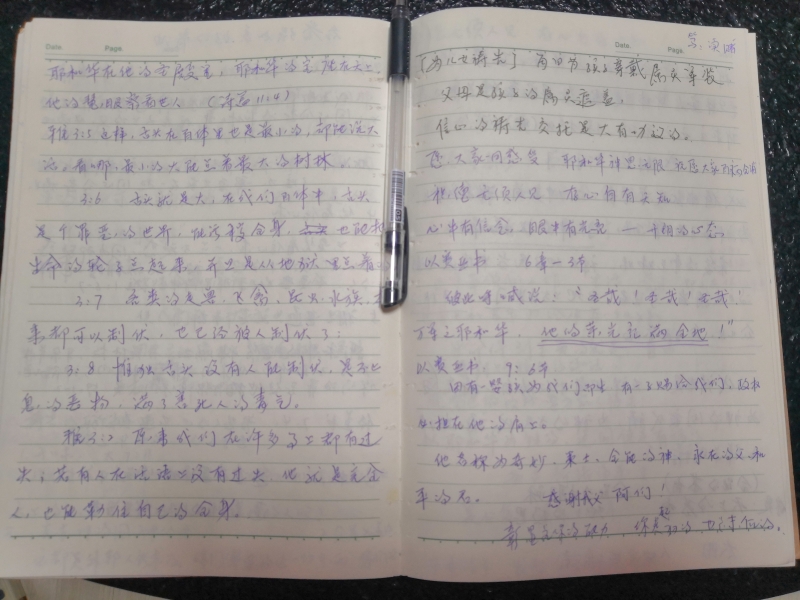 Date.  Page.
耶和华在他的圣殿里,耶和华的宝座在天上
他的慧眼察看世人 (诗篇11:4)
雅3:5 这样,舌头在百体里也是最小的,却能说大
话,看哪,最小的火能点着最大的树林
3:6 舌头就是火,在我们百体中,舌头
是个罪恶的世界,能污秽全身,也能把
生命的轮子点起来,并且是从地狱里点着
3:7 各类的走兽、飞禽、昆虫、水族、本
来都可以制伏,也已经被人制伏了;
3:8 惟独舌头没有人能制伏,是不止
息的恶物,满了害死人的毒气。
雅3:2 原来我们在许多事上都有过
失;若有人在话语上没有过失,他就是完全
人,也能勒住自己的全身。
Date.  Page.
[为儿女祷告] 每日为孩子穿戴属灵军装
父母是孩子的属灵遮盖,
信心的祷告交托是大有功效的。
愿大家同感受 耶和华神
在心自有
心中有信念,眼中有光亮 一 的心态
以赛亚书 6章-3节
彼此呼喊说:“圣哉!圣哉!圣哉!
万军之耶和华,他的荣光充满全地!”
以赛亚书:9:6节
因有一婴孩为我们而生 有一子赐给我们,政权
必担在他的肩上。
他名称为奇妙、策士、全能的神、永在的父、和
平的君。 感谢父 阿们!